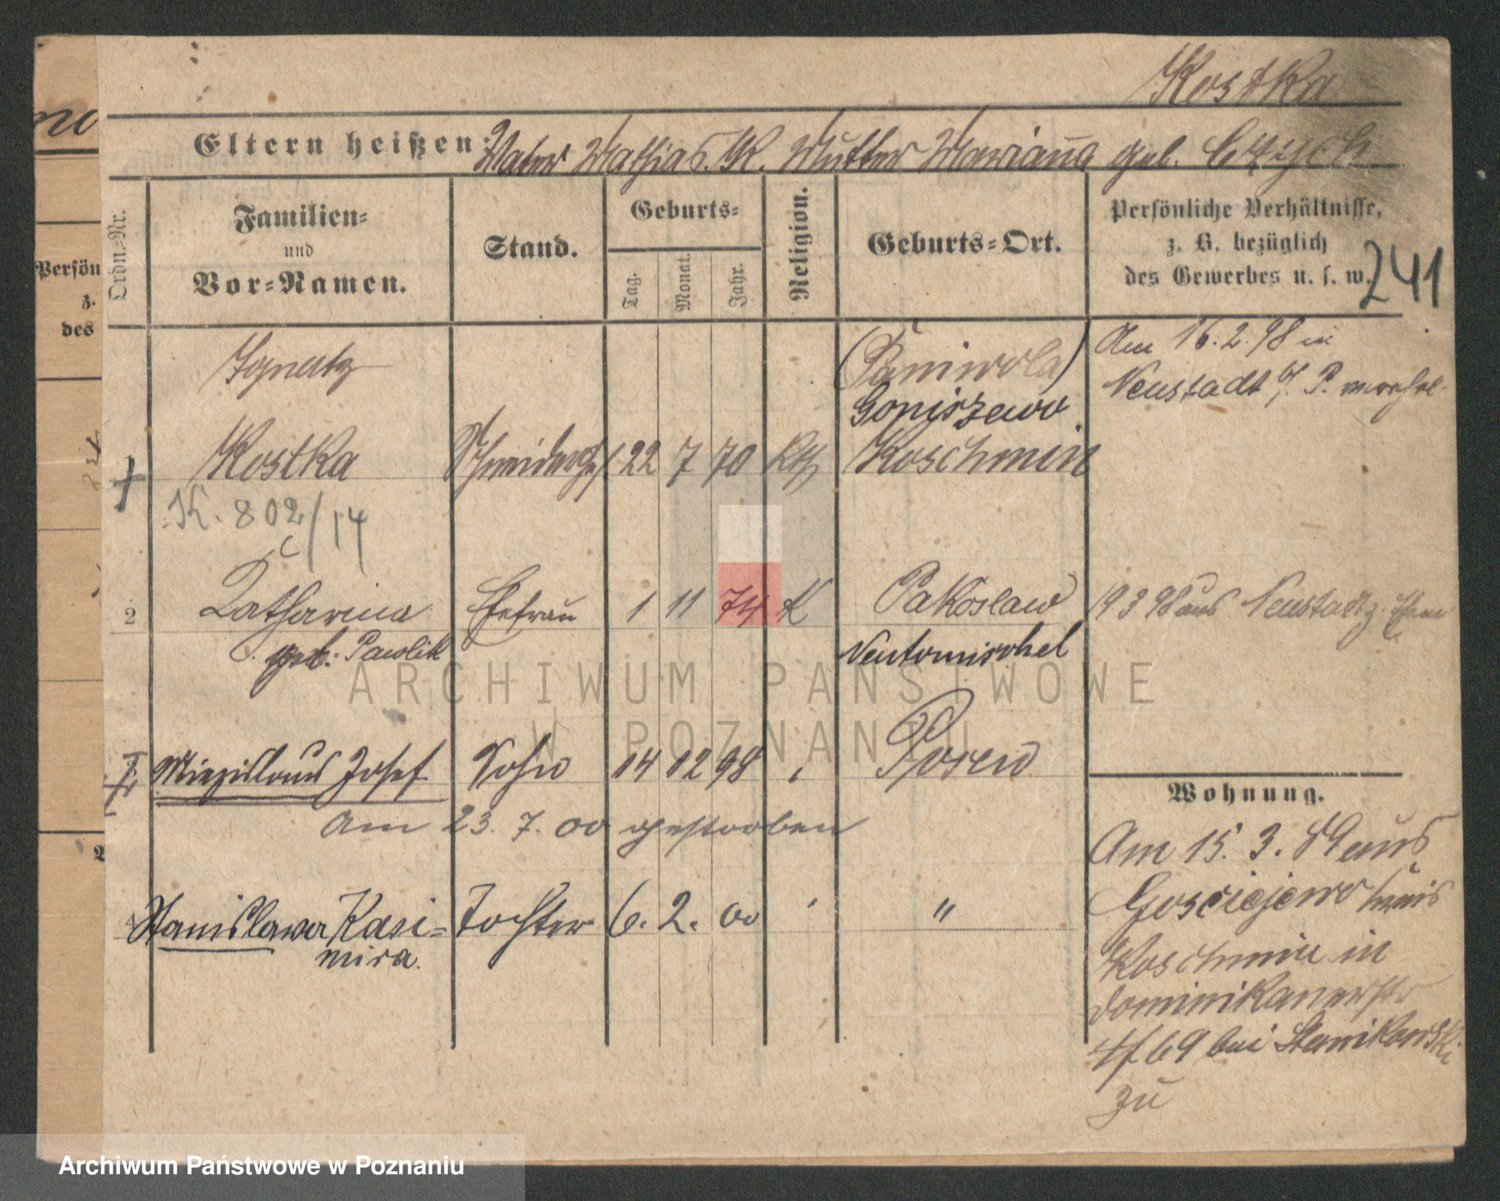 Kostka
Eltern heißen: Vater Mathias K. Mutter Marianna geb. Czych
Ordn.-Nr.
Familien- und Vor-Namen.
Stand.
Geburts-
Tag. Monat. Jahr.
Religion.
Geburts-Ort.
Persönliche Verhältnisse,
z. B. bezüglich
des Gewerbes u. s. w.
241
Ignatz
Kostka Schneiderges. 22 7 70 Kth
(Paniwola)
Goniszewo
Koschmin
Am 16.2.98 in
Neustadt b/P. verehel.
K. 802/14
2 Catharina Ehefrau 1 11 74 K Pakoslaw 19 3 98 aus Neustadt z. Ehem
geb. Pawlik Neutomischel
Miezislaus Josef Sohn 14 12 98 Posen
am 23. 7. 00 gestorben
Stanislawa Kasi- Tochter 6. 2. 00 "
mira.
Wohnung.
Am 15. 3. 89 aus
Gosciejewo
Koschmin in
Dominikanerstr
69 bei
zu
Persön
z.
des
ARCHIWUM PAŃSTWOWE
W POZNANIU
Archiwum Państwowe w Poznaniu